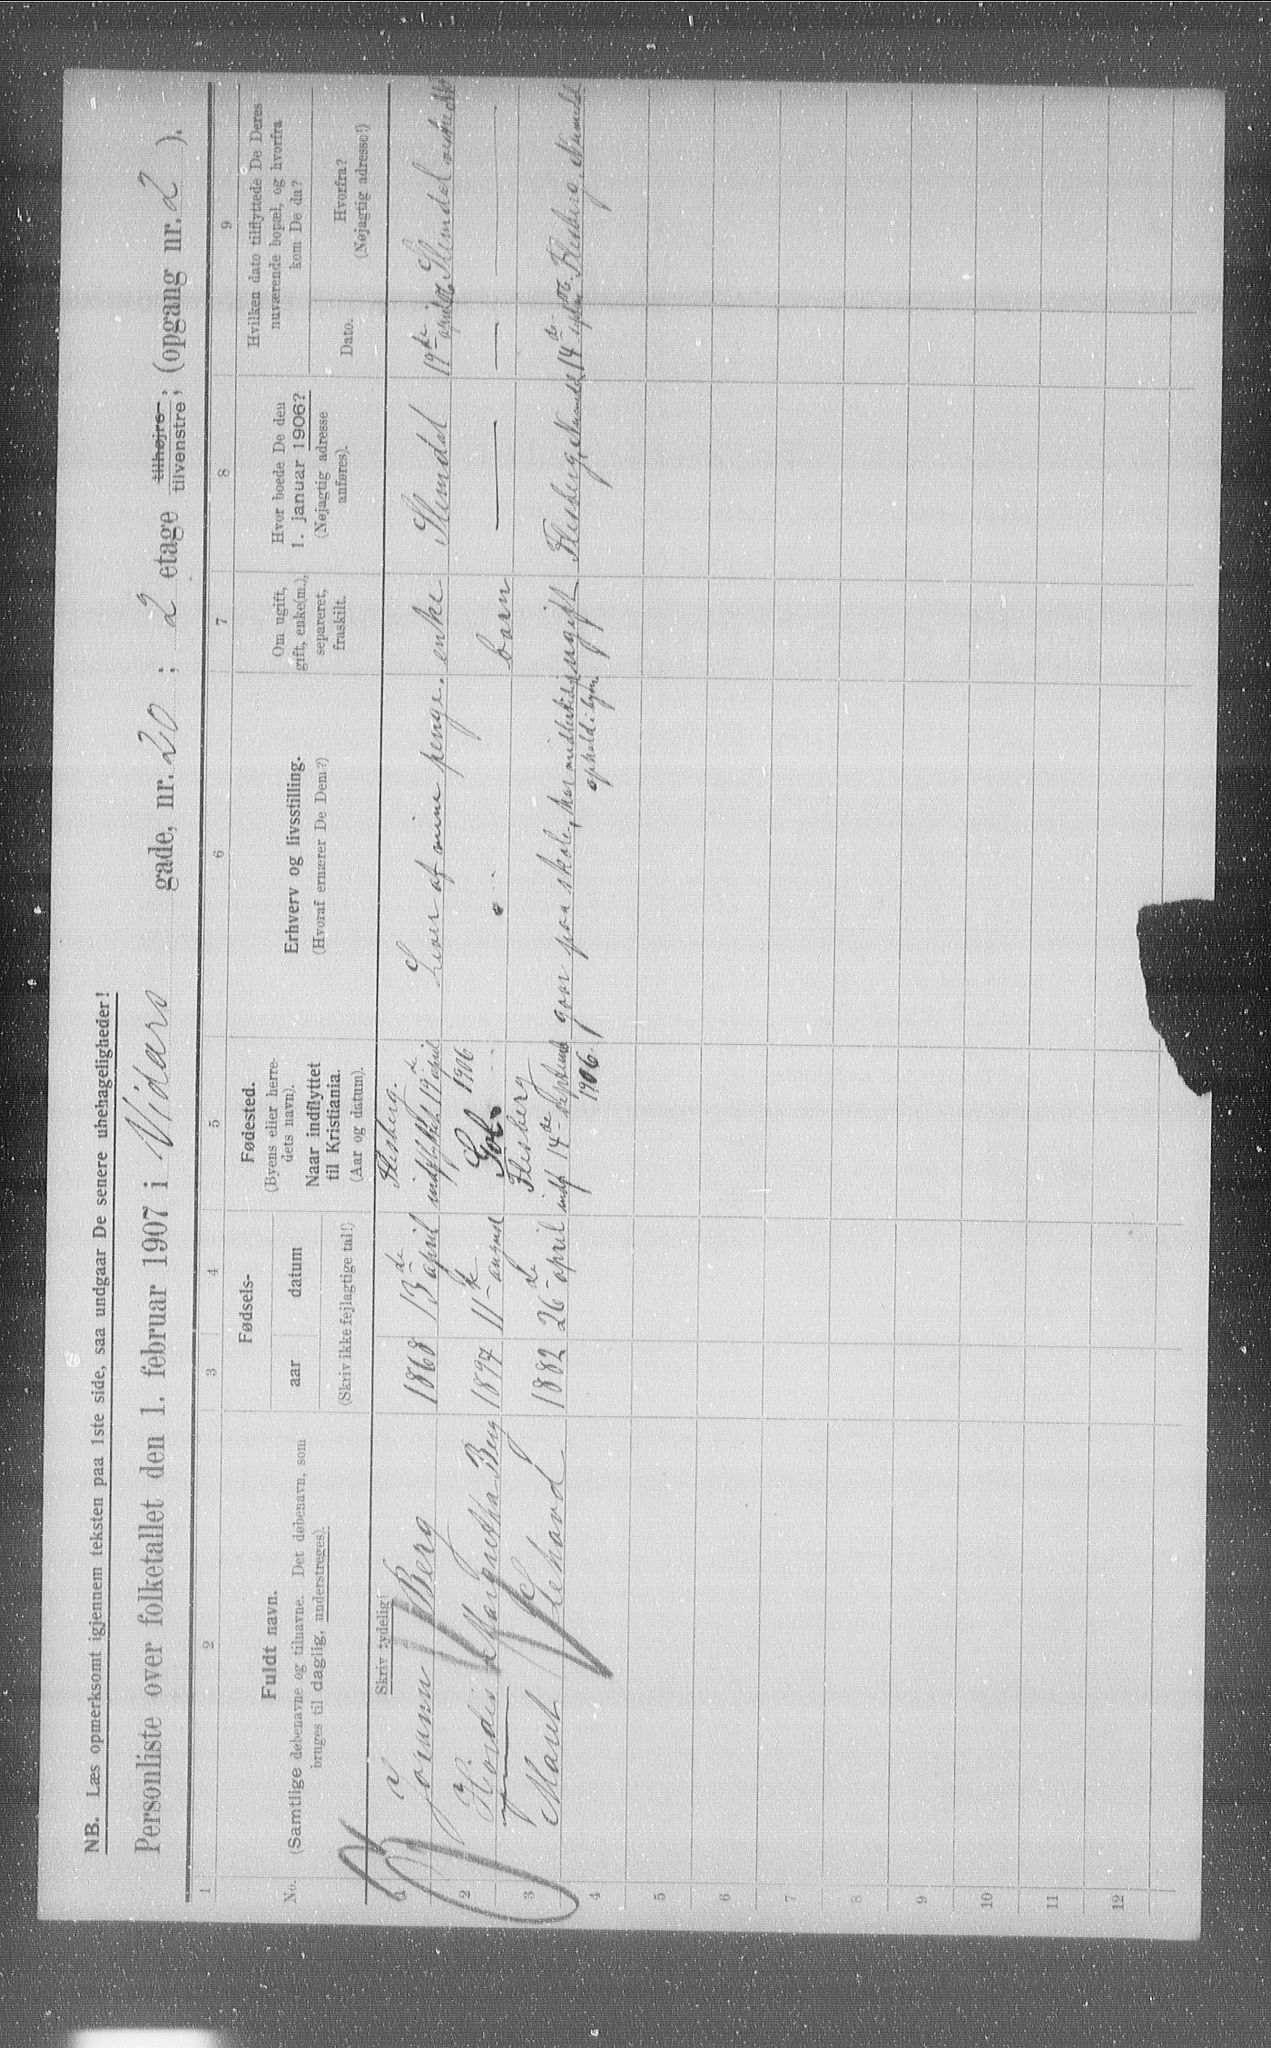 NB. Læs opmerksomt igjennem teksten paa 1ste side, saa undgaar De senere ubehageligheder!
Personliste over folketallet den 1. februar 1907 i Vidars gade, nr. 20 ; 2 etage tilhøjre, tilvenstre; (opgang nr. 2 ).
1 2 3 4 5 6 7 8 9
No.
Fuldt navn.
(Samtlige døbenavne og tilnavne. Det døbenavn, som
bruges til daglig, understreges).
Skriv tydelig!
Fødsels-
aar datum
(Skriv ikke fejlagtige tal!)
Fødested.
(Byens eller herre-
dets navn).
Naar indflyttet
til Kristiania.
(Aar og datum).
Erhverv og livsstilling.
(Hvoraf ernærer De Dem?)
Om ugift,
gift, enke(m.),
separeret,
fraskilt.
Hvor boede De den
1. januar 1906?
(Nøjagtig adresse
anføres).
Hvilken dato tilflyttede De Deres
nuværende bopæl, og hvorfra
kom De da?
Dato.
Hvorfra?
(Nøjagtig adresse!)
1 Jorunn Berg 1868 13de april Flesberg. indflyttet 19de april 1906 Lever af mine penge. enke Slemdal 19de april 06 Slemdal
2 Hjordis Margretha Berg 1897 11te august Gol barn
3 Marit 1882 26de april Flesberg indf 14de septemb 1906. gaar paa skole, har midlertidig ophold i byen. ugift Flesberg, Numedal 14de septm 06. Flesberg, Numedal
4
5
6
7
8
9
10
11
12